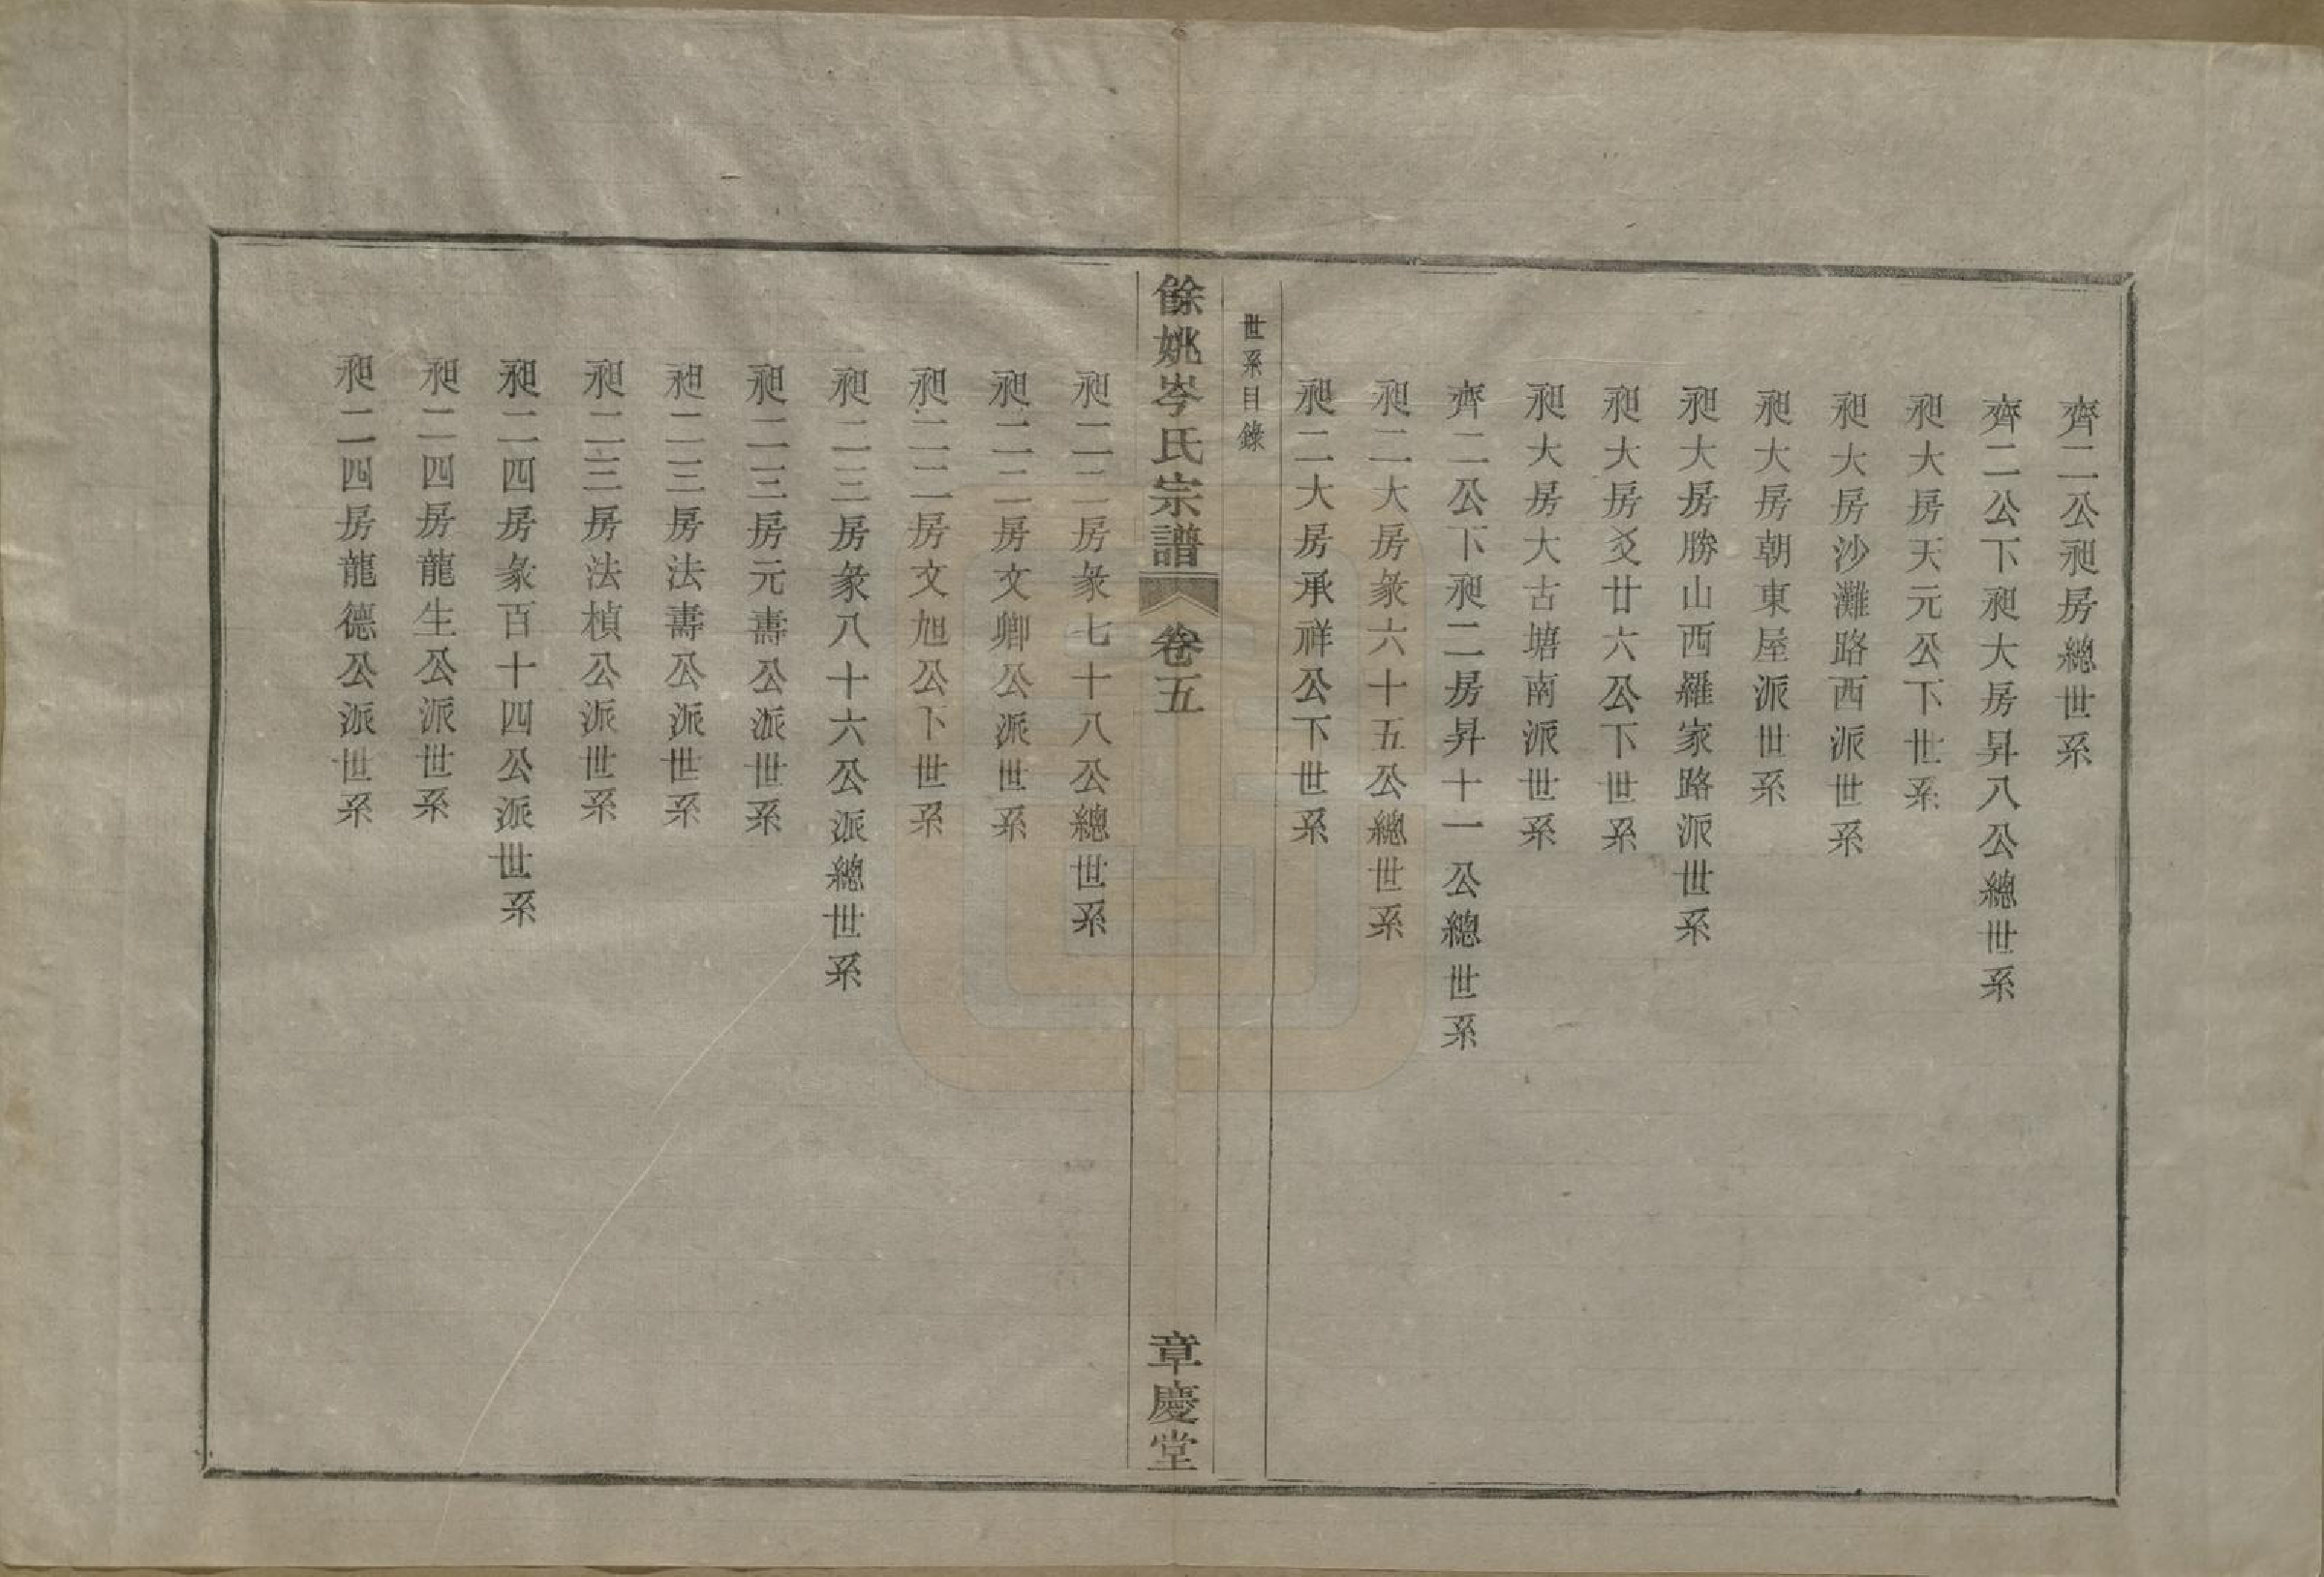 齊二公昶房總世系
齊二公下昶大房昇八公總世系
昶大房天元公下世系
昶大房沙灘路西派世系
昶大房朝東屋派世系
昶大房勝山西羅家路派世系
昶大房爻廿六公下世系
昶大房大古塘南派世系
齊二公下昶二房昇十一公總世系
昶二大房彖六十五公總世系
昶二大房承祥公下世系
世系目錄
餘姚岑氏宗譜 卷五 章慶堂
昶二二房彖七十八公總世系
昶二二房文卿公派世系
昶二二房文旭公下世系
昶二三房彖八十六公派總世系
昶二三房元壽公派世系
昶二三房法壽公派世系
昶二三房法楨公派世系
昶二四房彖百十四公派世系
昶二四房龍生公派世系
昶二四房龍德公派世系